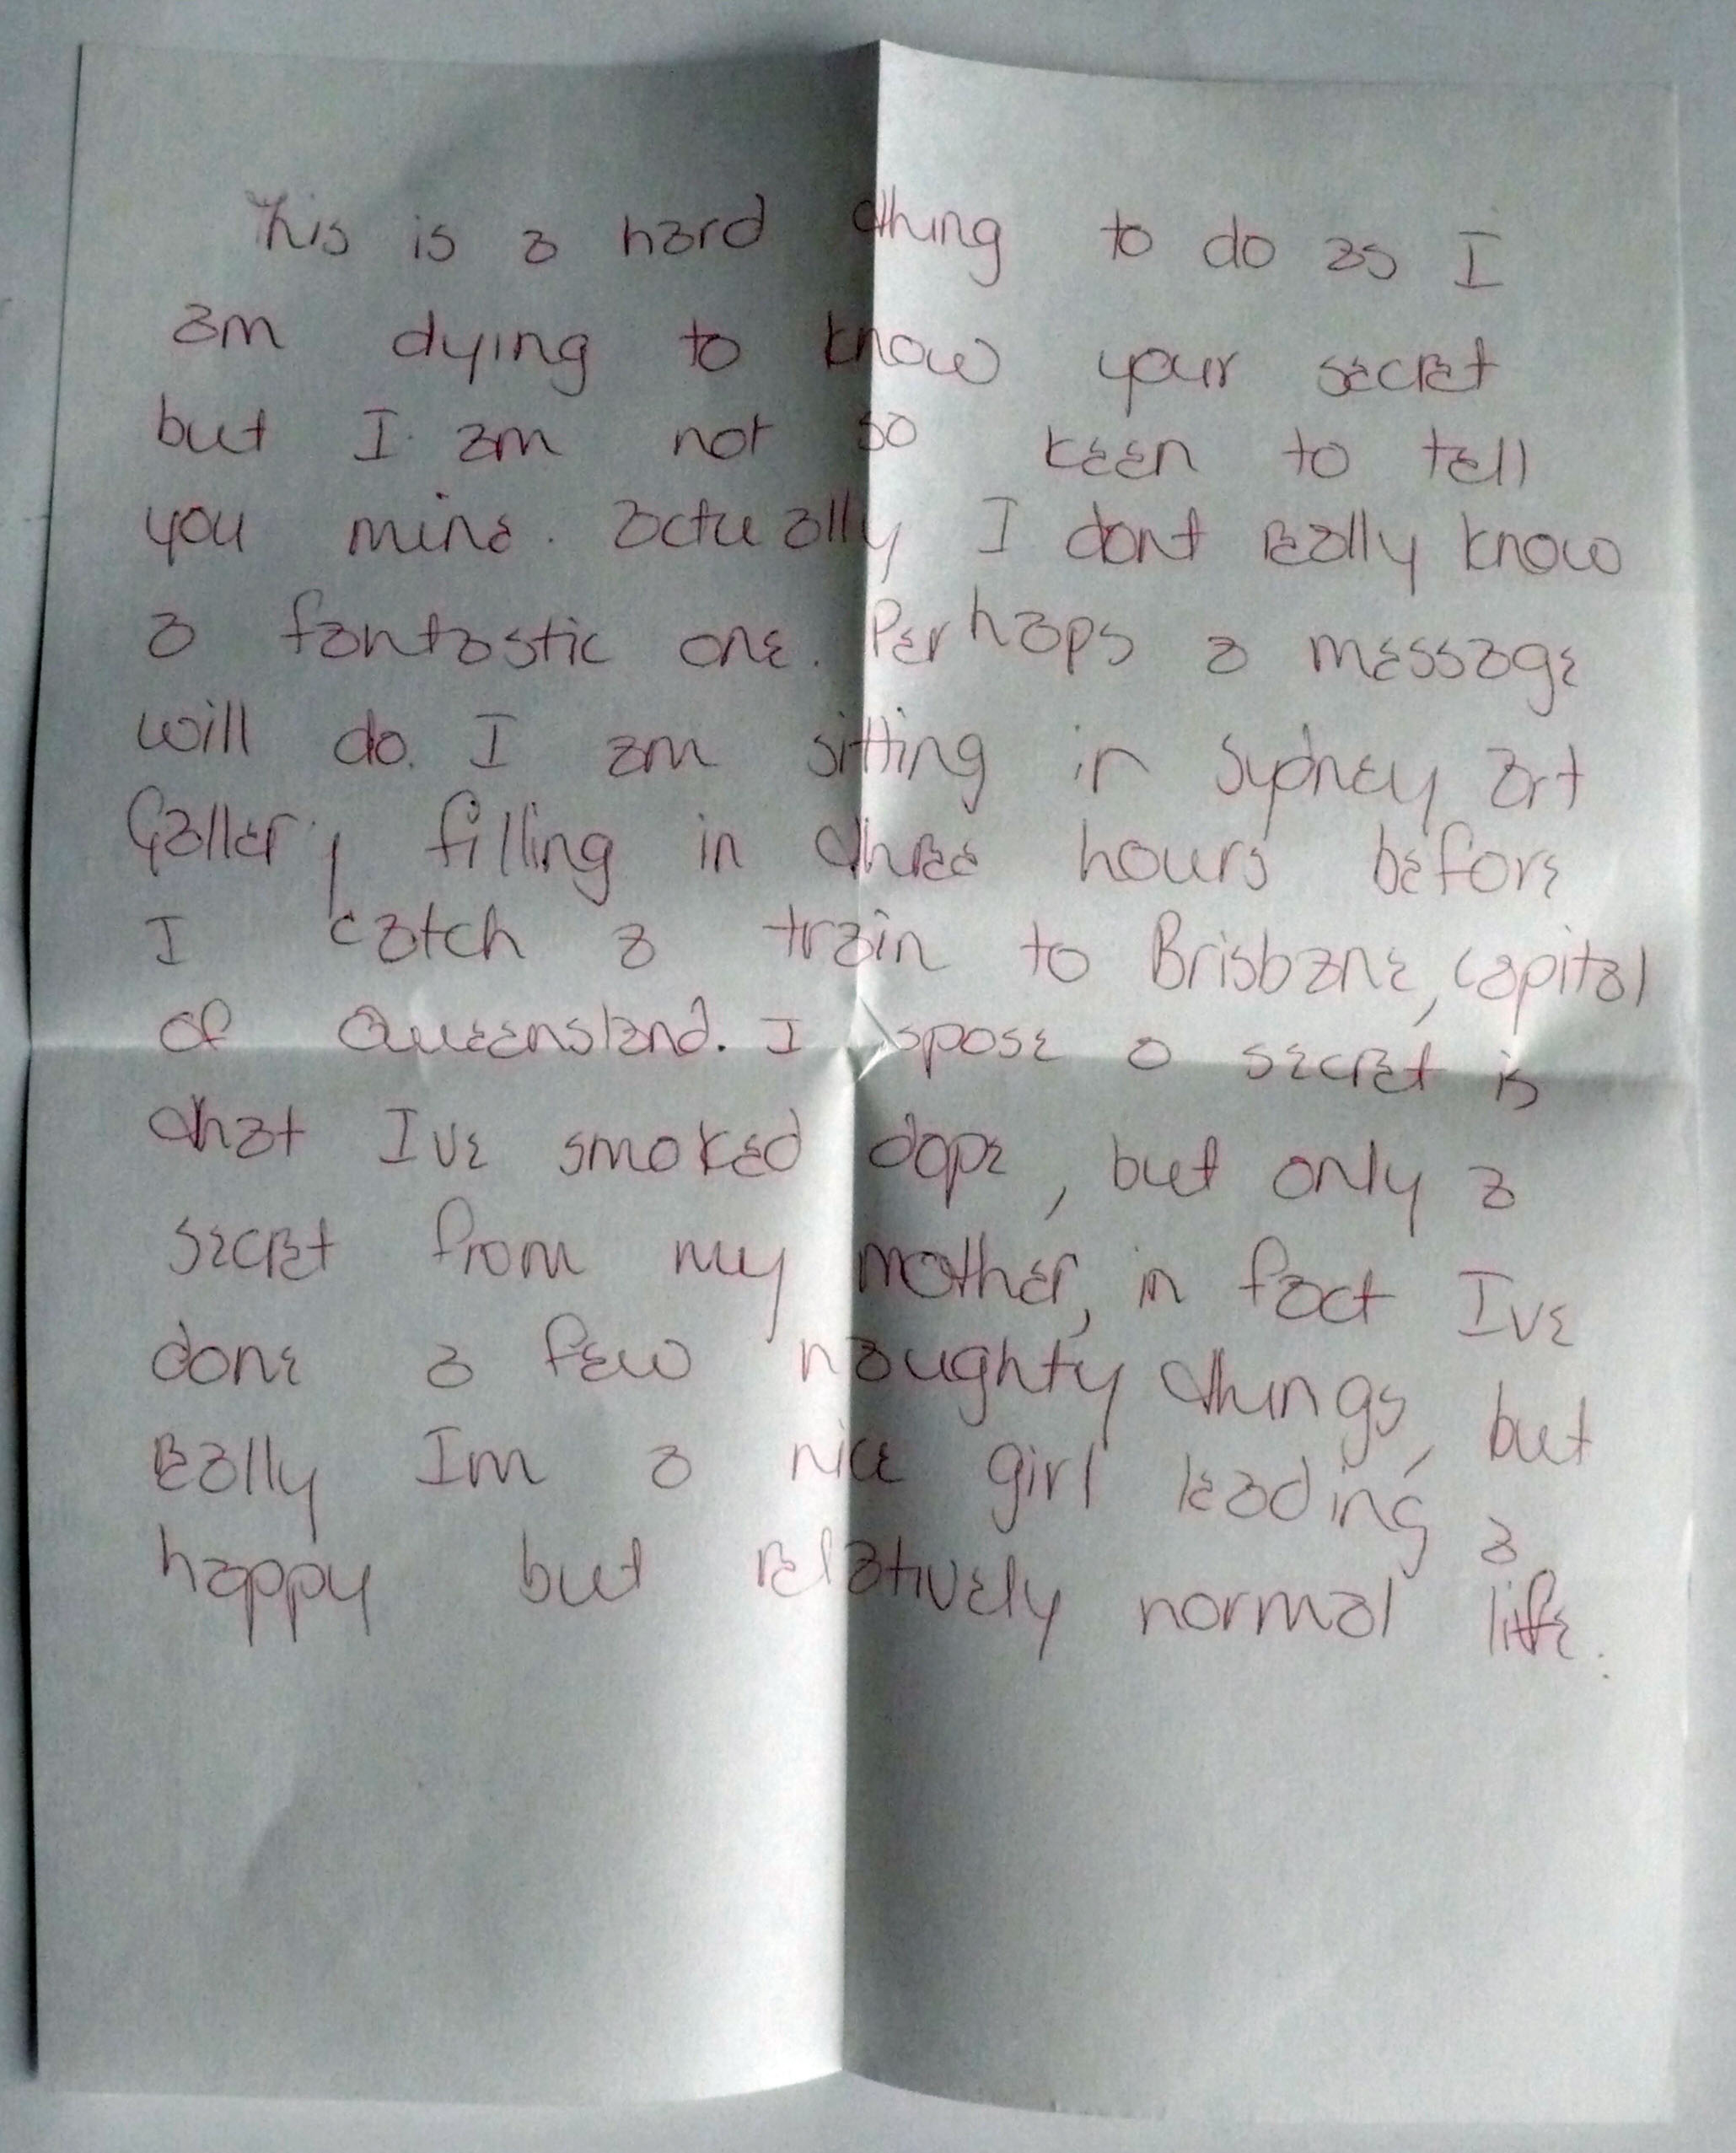 This is a hard thing to do as I
am dying to know your secret
but I am not so keen to tell
you mine. actually I dont really know
a fantastic one. Perhaps a message
will do. I am sitting in Sydney art
Gallery filling in three hours before
I catch a train to Brisbane, capital
of Queensland. I spose a secret is
that Ive smoked dope, but only a
secret from my mother, in fact Ive
done a few naughty things, but
really Im a nice girl leading a
happy but relatively normal life.